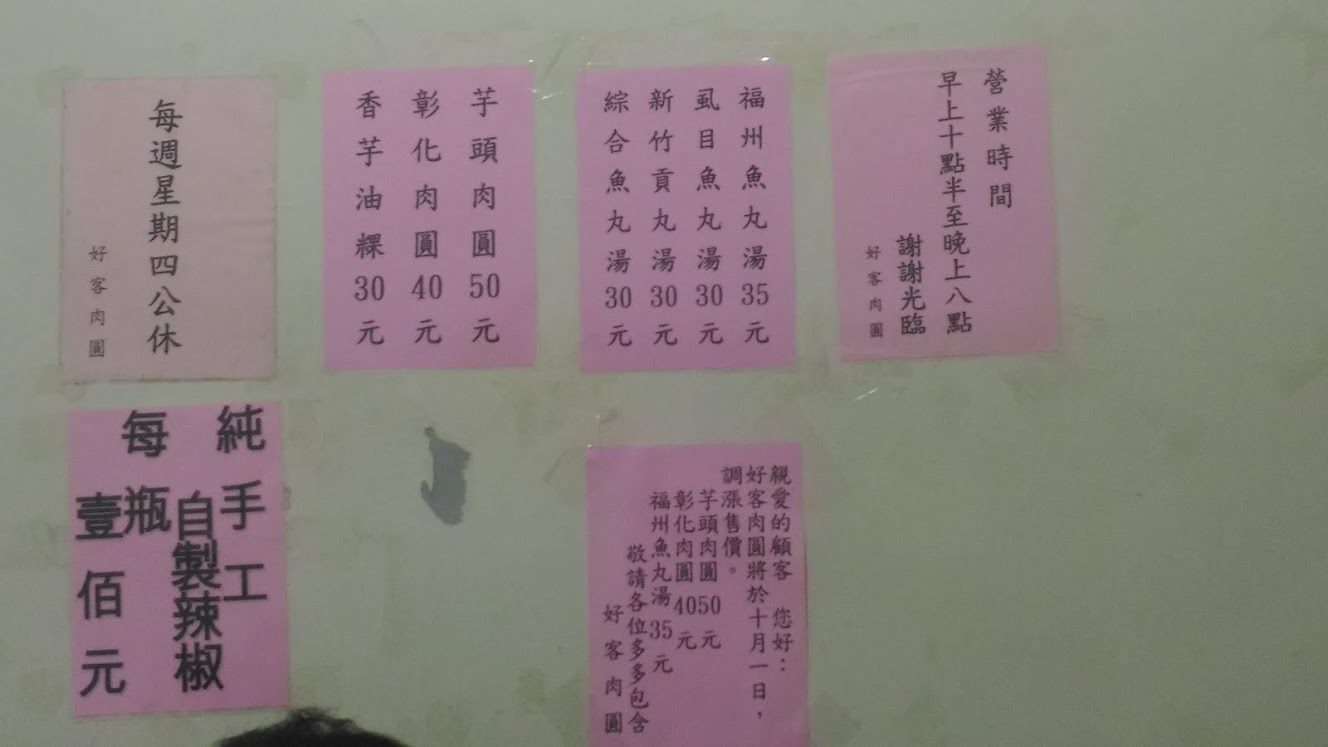 每週星期四公休
好客肉圓
芋頭肉圓50元
彰化肉圓40元
香芋油粿30元
福州魚丸湯35元
虱目魚丸湯30元
新竹貢丸湯30元
綜合魚丸湯30元
營業時間
早上十點半至晚上八點
謝謝光臨
好客肉圓
純手工
自製辣椒
每瓶
壹佰元
親愛的顧客 您好：
好客肉圓將於十月一日，
調漲售價。
芋頭肉圓50元
彰化肉圓40元
福州魚丸湯35元
敬請各位多多包含
好客肉圓